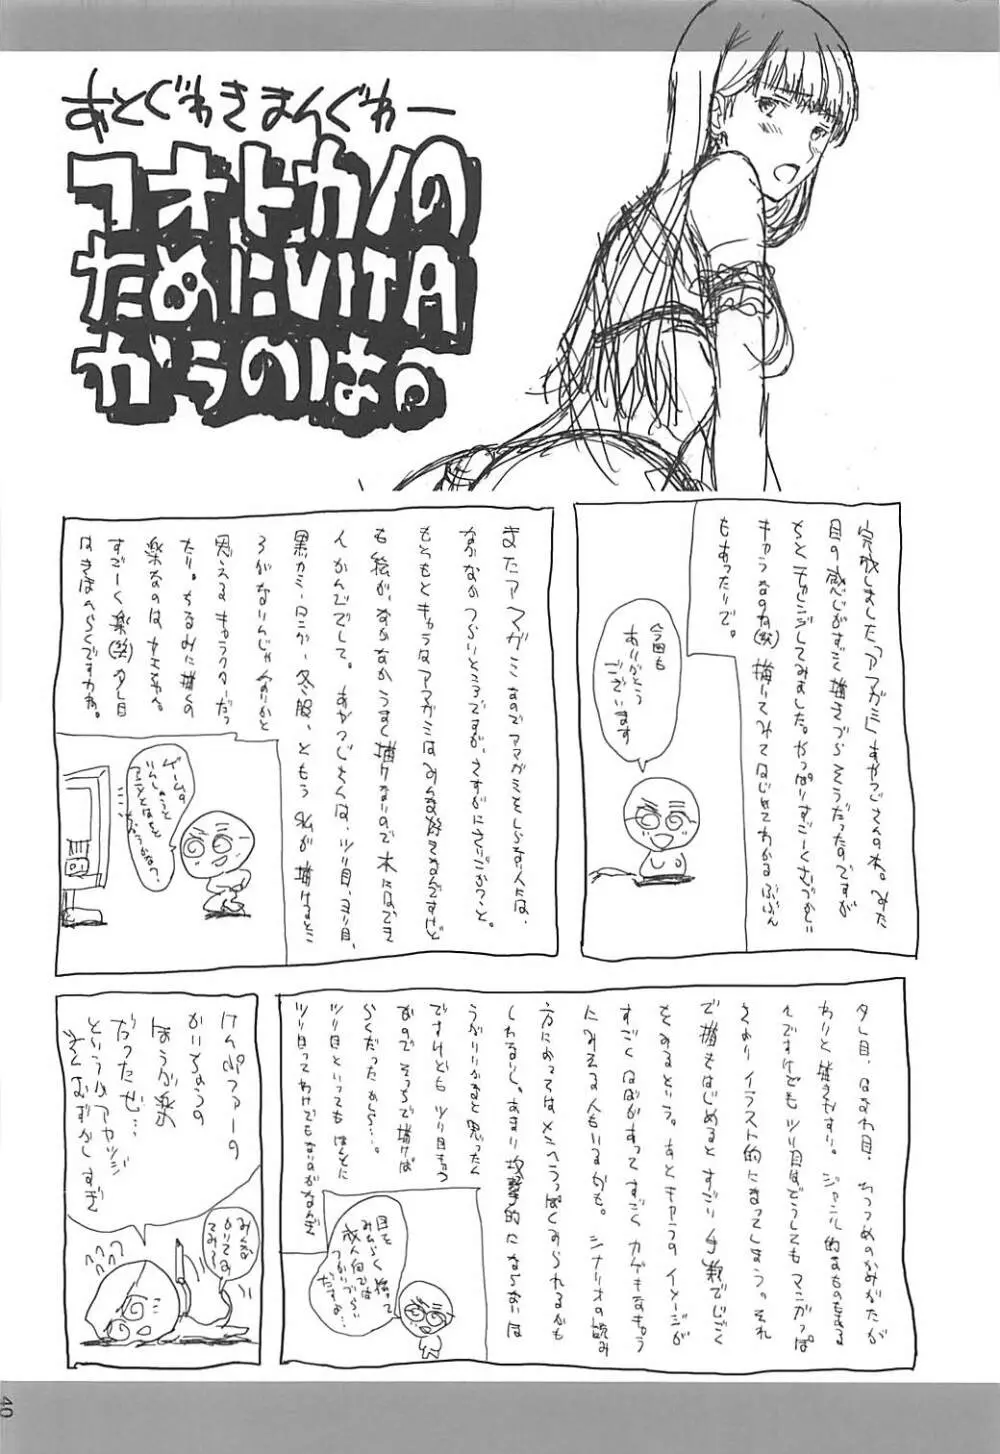 あとぐわきまんぐわー
コオトカノの
ためにVITA
かうのはる
完成しました「アマガミ」あやつじさんの本。みた
目の感じがすごく描きづらそうだったのですが
ちとチャレンジしてみました。やっぱりすごーくむづかしい
キャラなのね(笑)描いてみてはじめてわかるぶぶん
もあったりで。
今回も
ありがとう
ございます
またアマガミなのでアマガミをしらない人には、
なかなかつらいところですが、さすがにさいごかつーと。
もともとキャラはアマガミはみんな好きなんですけど
も絵が、なかなかうまく描けないので本にはできて
いんかんじでして。あやつじさんは、ツリ目、ヨリ目、
黒カミ、ロング、冬服、ともう私が描けるとこ
ろがないんじゃないかと
思えるキャラクターだっ
たり。ちなみに描くの
楽なのは
すごーく楽(笑)タレ目
はきほんらくですわね。
ゲームの
いんしょうと
アニメとはちと
ちがうかな?
タレ目、はなれ目、
わりと描きやすい。ジャンル的なものもある
んですけどもツリ目はどうしてもマンガっぽ
さよりイラスト的になってしまう。それ
で描きはじめるとすごい手数でじごく
をみるという。あとキャラのイメージが
すごくはばがあってすごくカゲキなキャラ
にみえる人もいるかも。シナリオの読み
方によってはメンヘラっぽくみられるかも
しれないし。あまり攻撃的にならないほ
うがいいかなと思ったん
ですけどもツリ目キャラ
なのでそっちで描けば
らくだったかしら…。
ツリ目といってもほんとに
ツリ目ってわけでもないのがなんぎ
目を
みじかく描いて
成人向では
つかいづらい
だすよ
けんぷファーの
かいちょうの
ほうが楽
だったぜ…
というかアヤツジ
さんむずかしすぎ
みんな
かいてる
てみろ
40